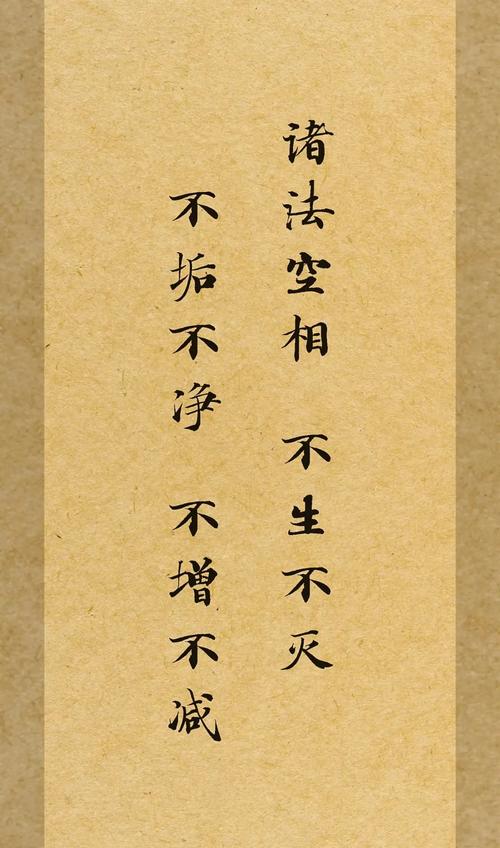 诸法空相 不生不灭
不垢不净 不增不减